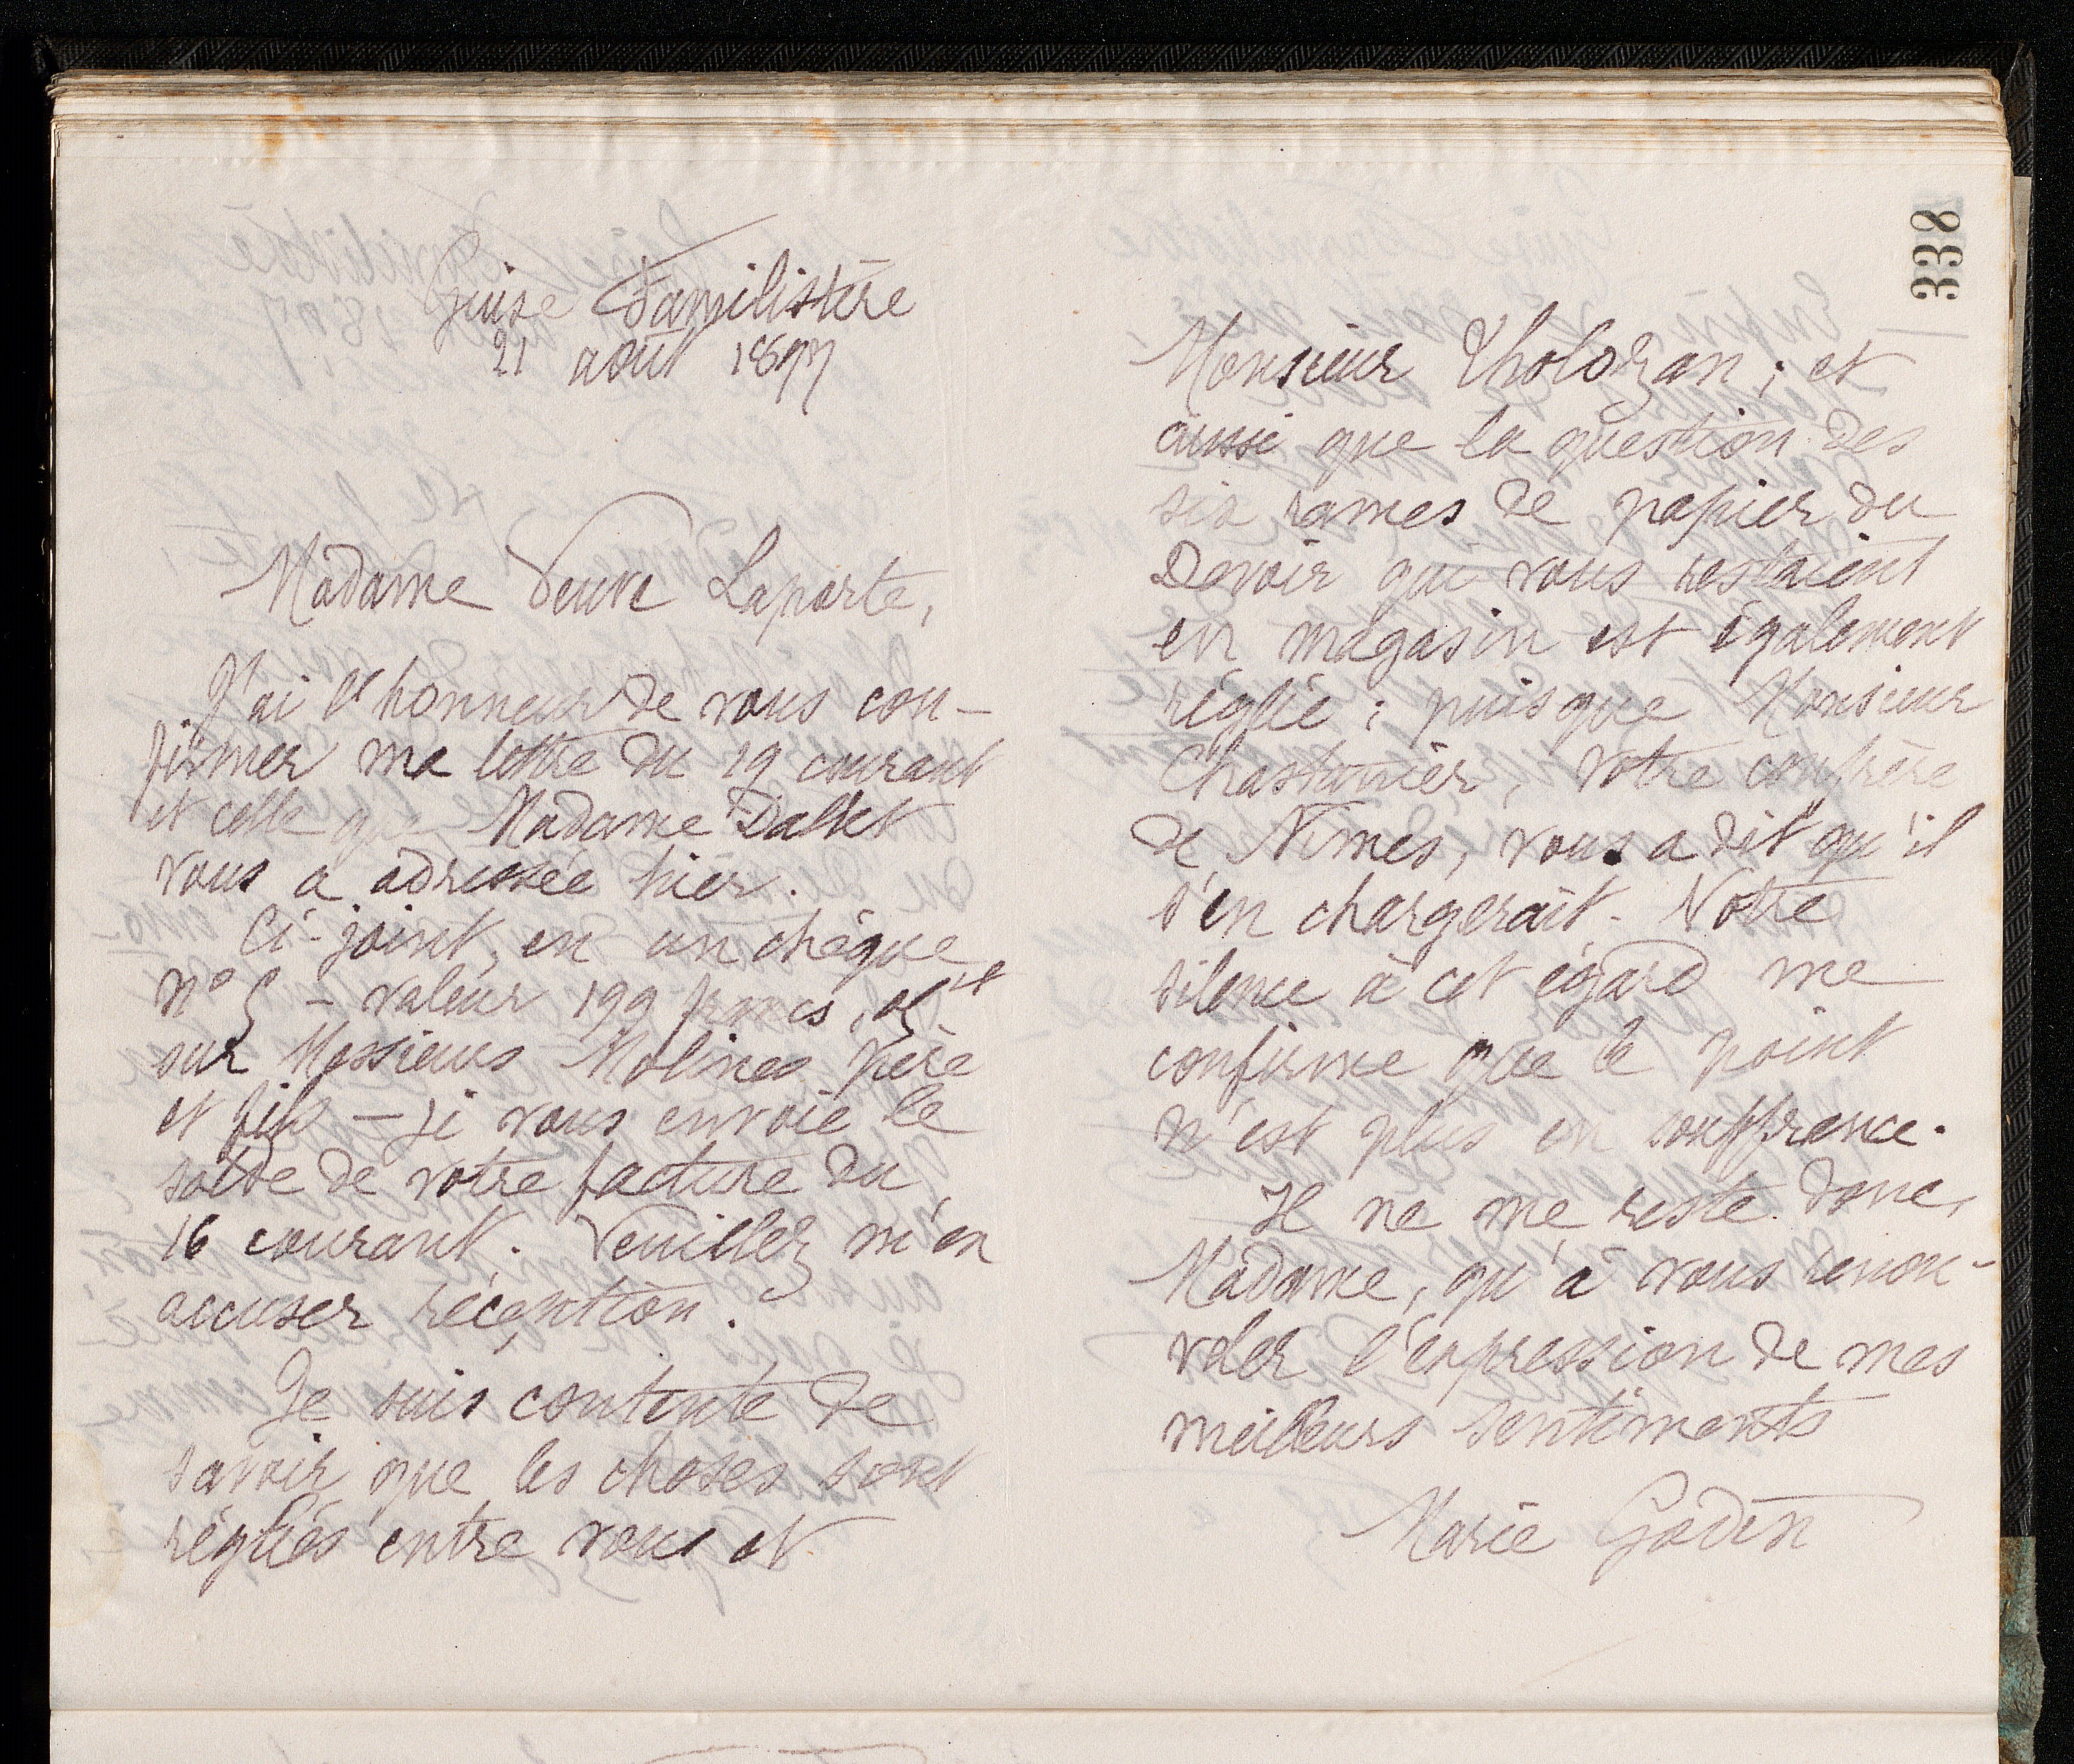 Guise Familistère
21 août 1897
Madame Veuve Laporte,
J'ai l'honneur de vous con-
firmer ma lettre du 19 courant
et celle que Madame Dallet
vous a adressée hier.
Ci-joint, en un chèque
n° 5 – valeur 199 francs,
sur Messieurs Molines père
et fils – je vous envoie le
solde de votre facture du
16 courant. Veuillez m'en
accuser réception.
Je suis contente de
savoir que les choses sont
réglées entre vous et
338
Monsieur Tholozan ; et
aussi que la question des
six rames de papier du
Devoir qui vous restaient
en magasin est également
réglée ; puisque Monsieur
Chastanier, votre confrère
de Nîmes, vous a dit qu'il
s'en chargerait. Votre
silence à cet égard me
confirme que le point
n'est plus en souffrance.
Il ne me reste donc,
Madame, qu'à vous renou-
veler l'expression de mes
meilleurs sentiments
Marie Godin